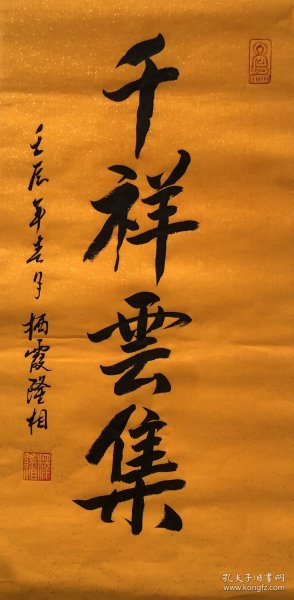 千祥雲集
壬辰年春月 栖霞隆相
孔夫子旧书网
www.kongfz.com